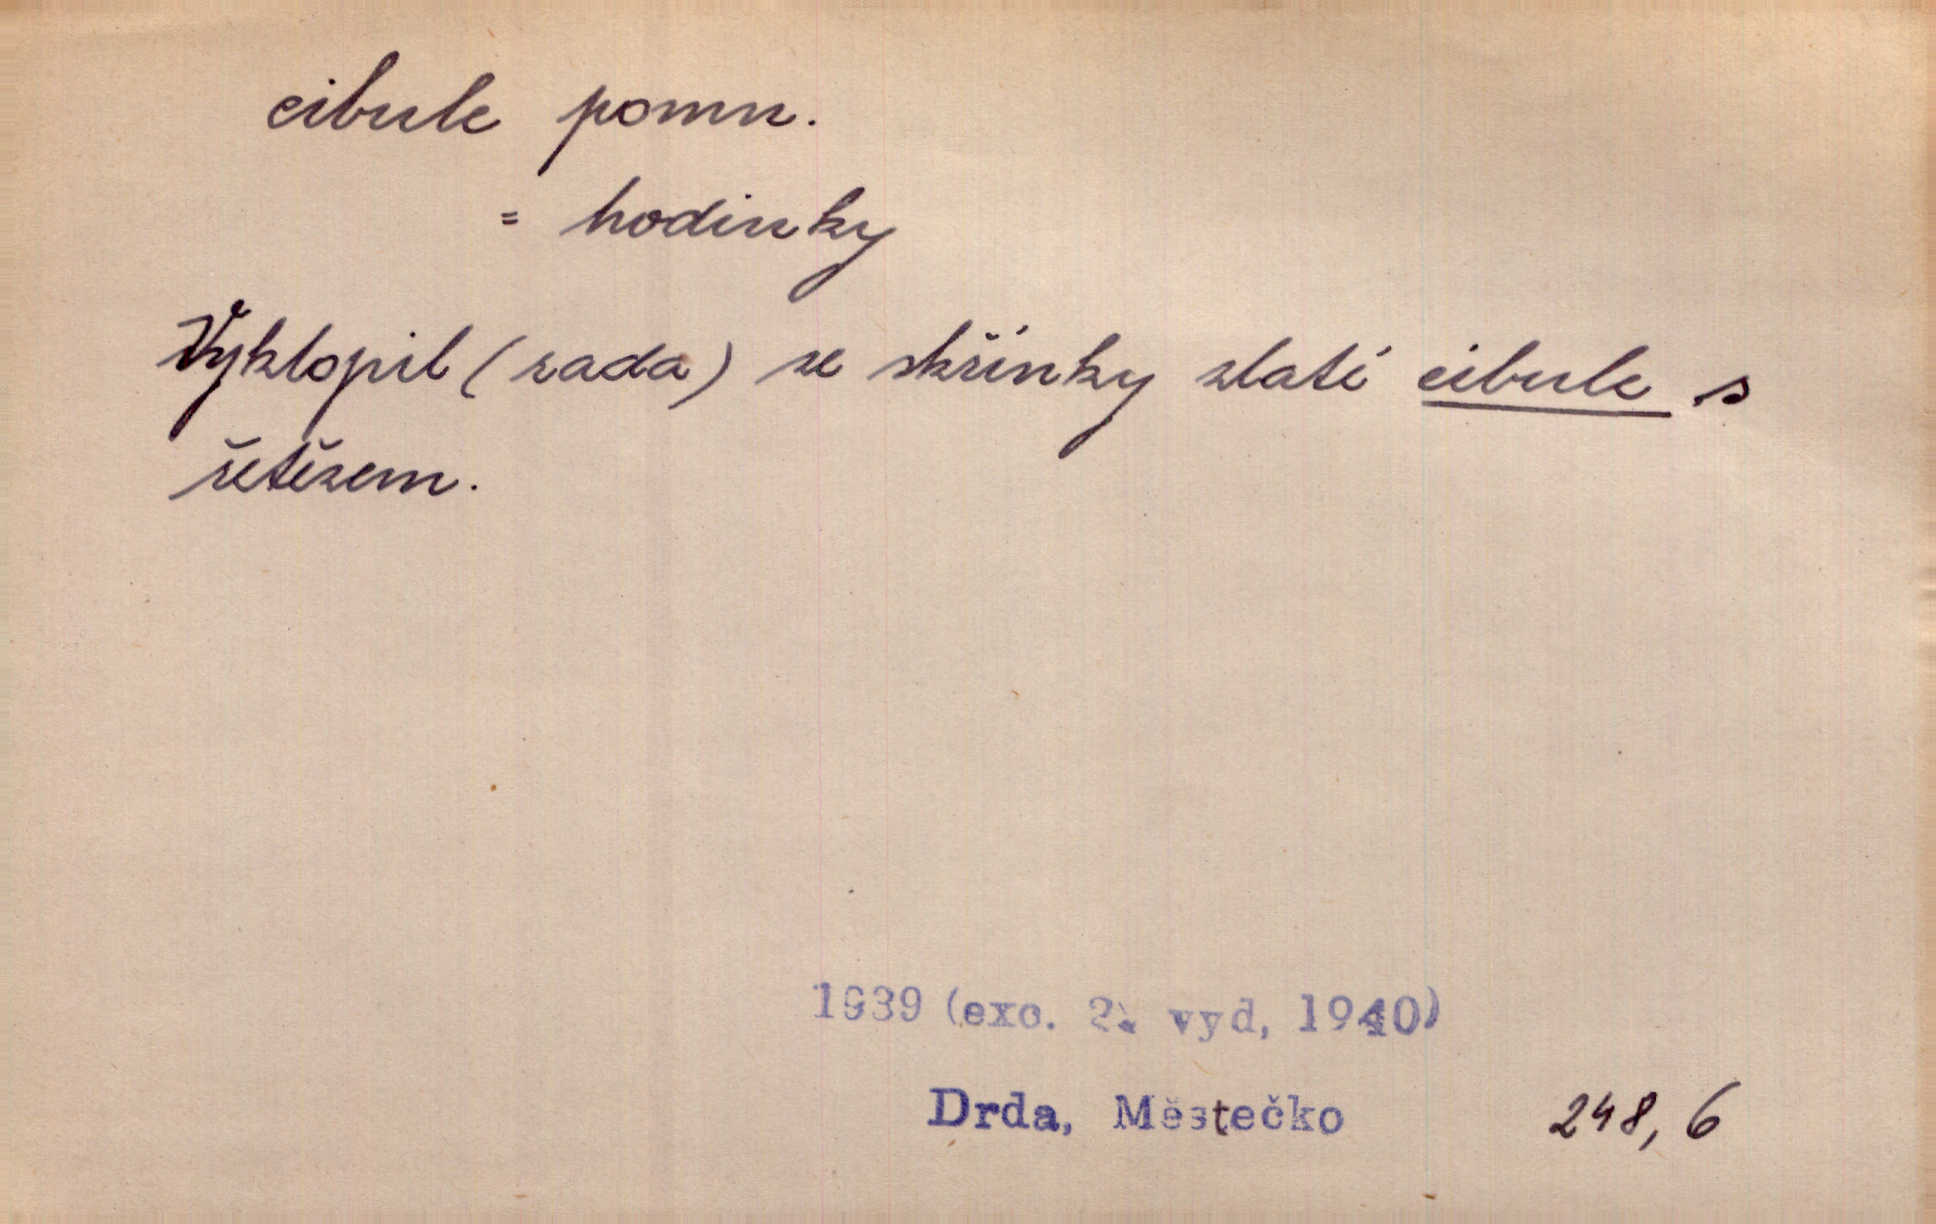 cibule pomn.
= hodinky
Vyklopil (rada) ze skřínky zlaté cibule s
řetězem.
1939 (exc. 2. vyd, 1940)
Drda, Městečko 248, 6